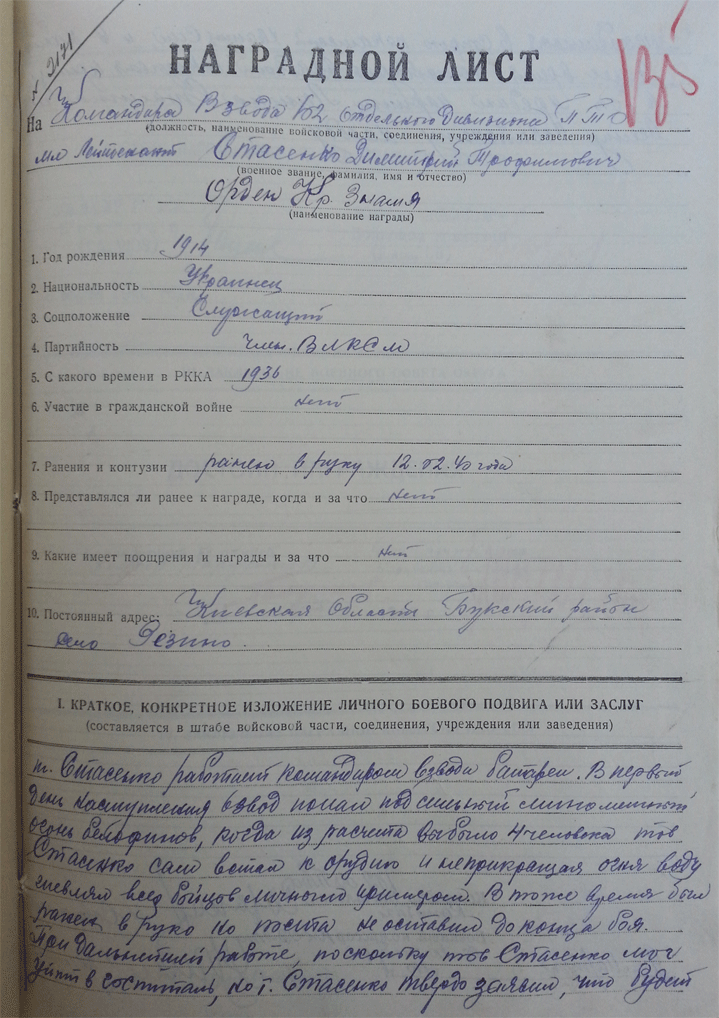 3171
НАГРАДНОЙ ЛИСТ
На Командира Взвода 62 отдельного Дивизиона ПТО
(должность, наименование войсковой части, соединения, учреждения или заведения)
мл Лейтенант Стасенко Димитрий Трофимович
(военное звание, фамилия, имя и отчество)
Орден Кр. Знамя
(наименование награды)
1. Год рождения 1914
2. Национальность Украинец
3. Соцположение Служащий
4. Партийность Член. ВЛКСМ
5. С какого времени в РККА 1936
6. Участие в гражданской войне нет
7. Ранения и контузии ранен в руку 12.02.40 года
8. Представлялся ли ранее к награде, когда и за что нет
9. Какие имеет поощрения и награды и за что нет
10. Постоянный адрес: Киевская Область Букский район
село Резино.
I. КРАТКОЕ, КОНКРЕТНОЕ ИЗЛОЖЕНИЕ ЛИЧНОГО БОЕВОГО ПОДВИГА ИЛИ ЗАСЛУГ
(составляется в штабе войсковой части, соединения, учреждения или заведения)
т. Стасенко работает командиром взвода батареи. В первый
день наступления взвод попал под сильный минометный
огонь белофинов, когда из расчета выбыло 4 человека тов
Стасенко сам встал к орудию и неприкращая огня воду
шевлял всех бойцов личным примером. В тоже время был
ранен в руку но поста не оставил до конца боя.
При дальнейшей работе, поскольку тов Стасенко мог
уйти в госпиталь, но т. Стасенко твердо заявил, что будет